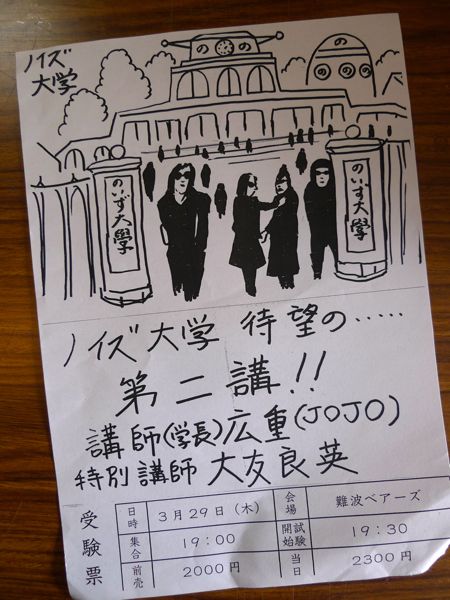 ノイズ
大学
のの
の
ののの
のいず大學
のいず大學
ノイズ大学 待望の‥‥‥
第二講!!
講師(学長)広重(JOJO)
特別講師 大友良英
受験票
日時 3月29日(木) 会場 難波ベアーズ
集合 19:00 試験開始 19:30
前売 2000円 当日 2300円